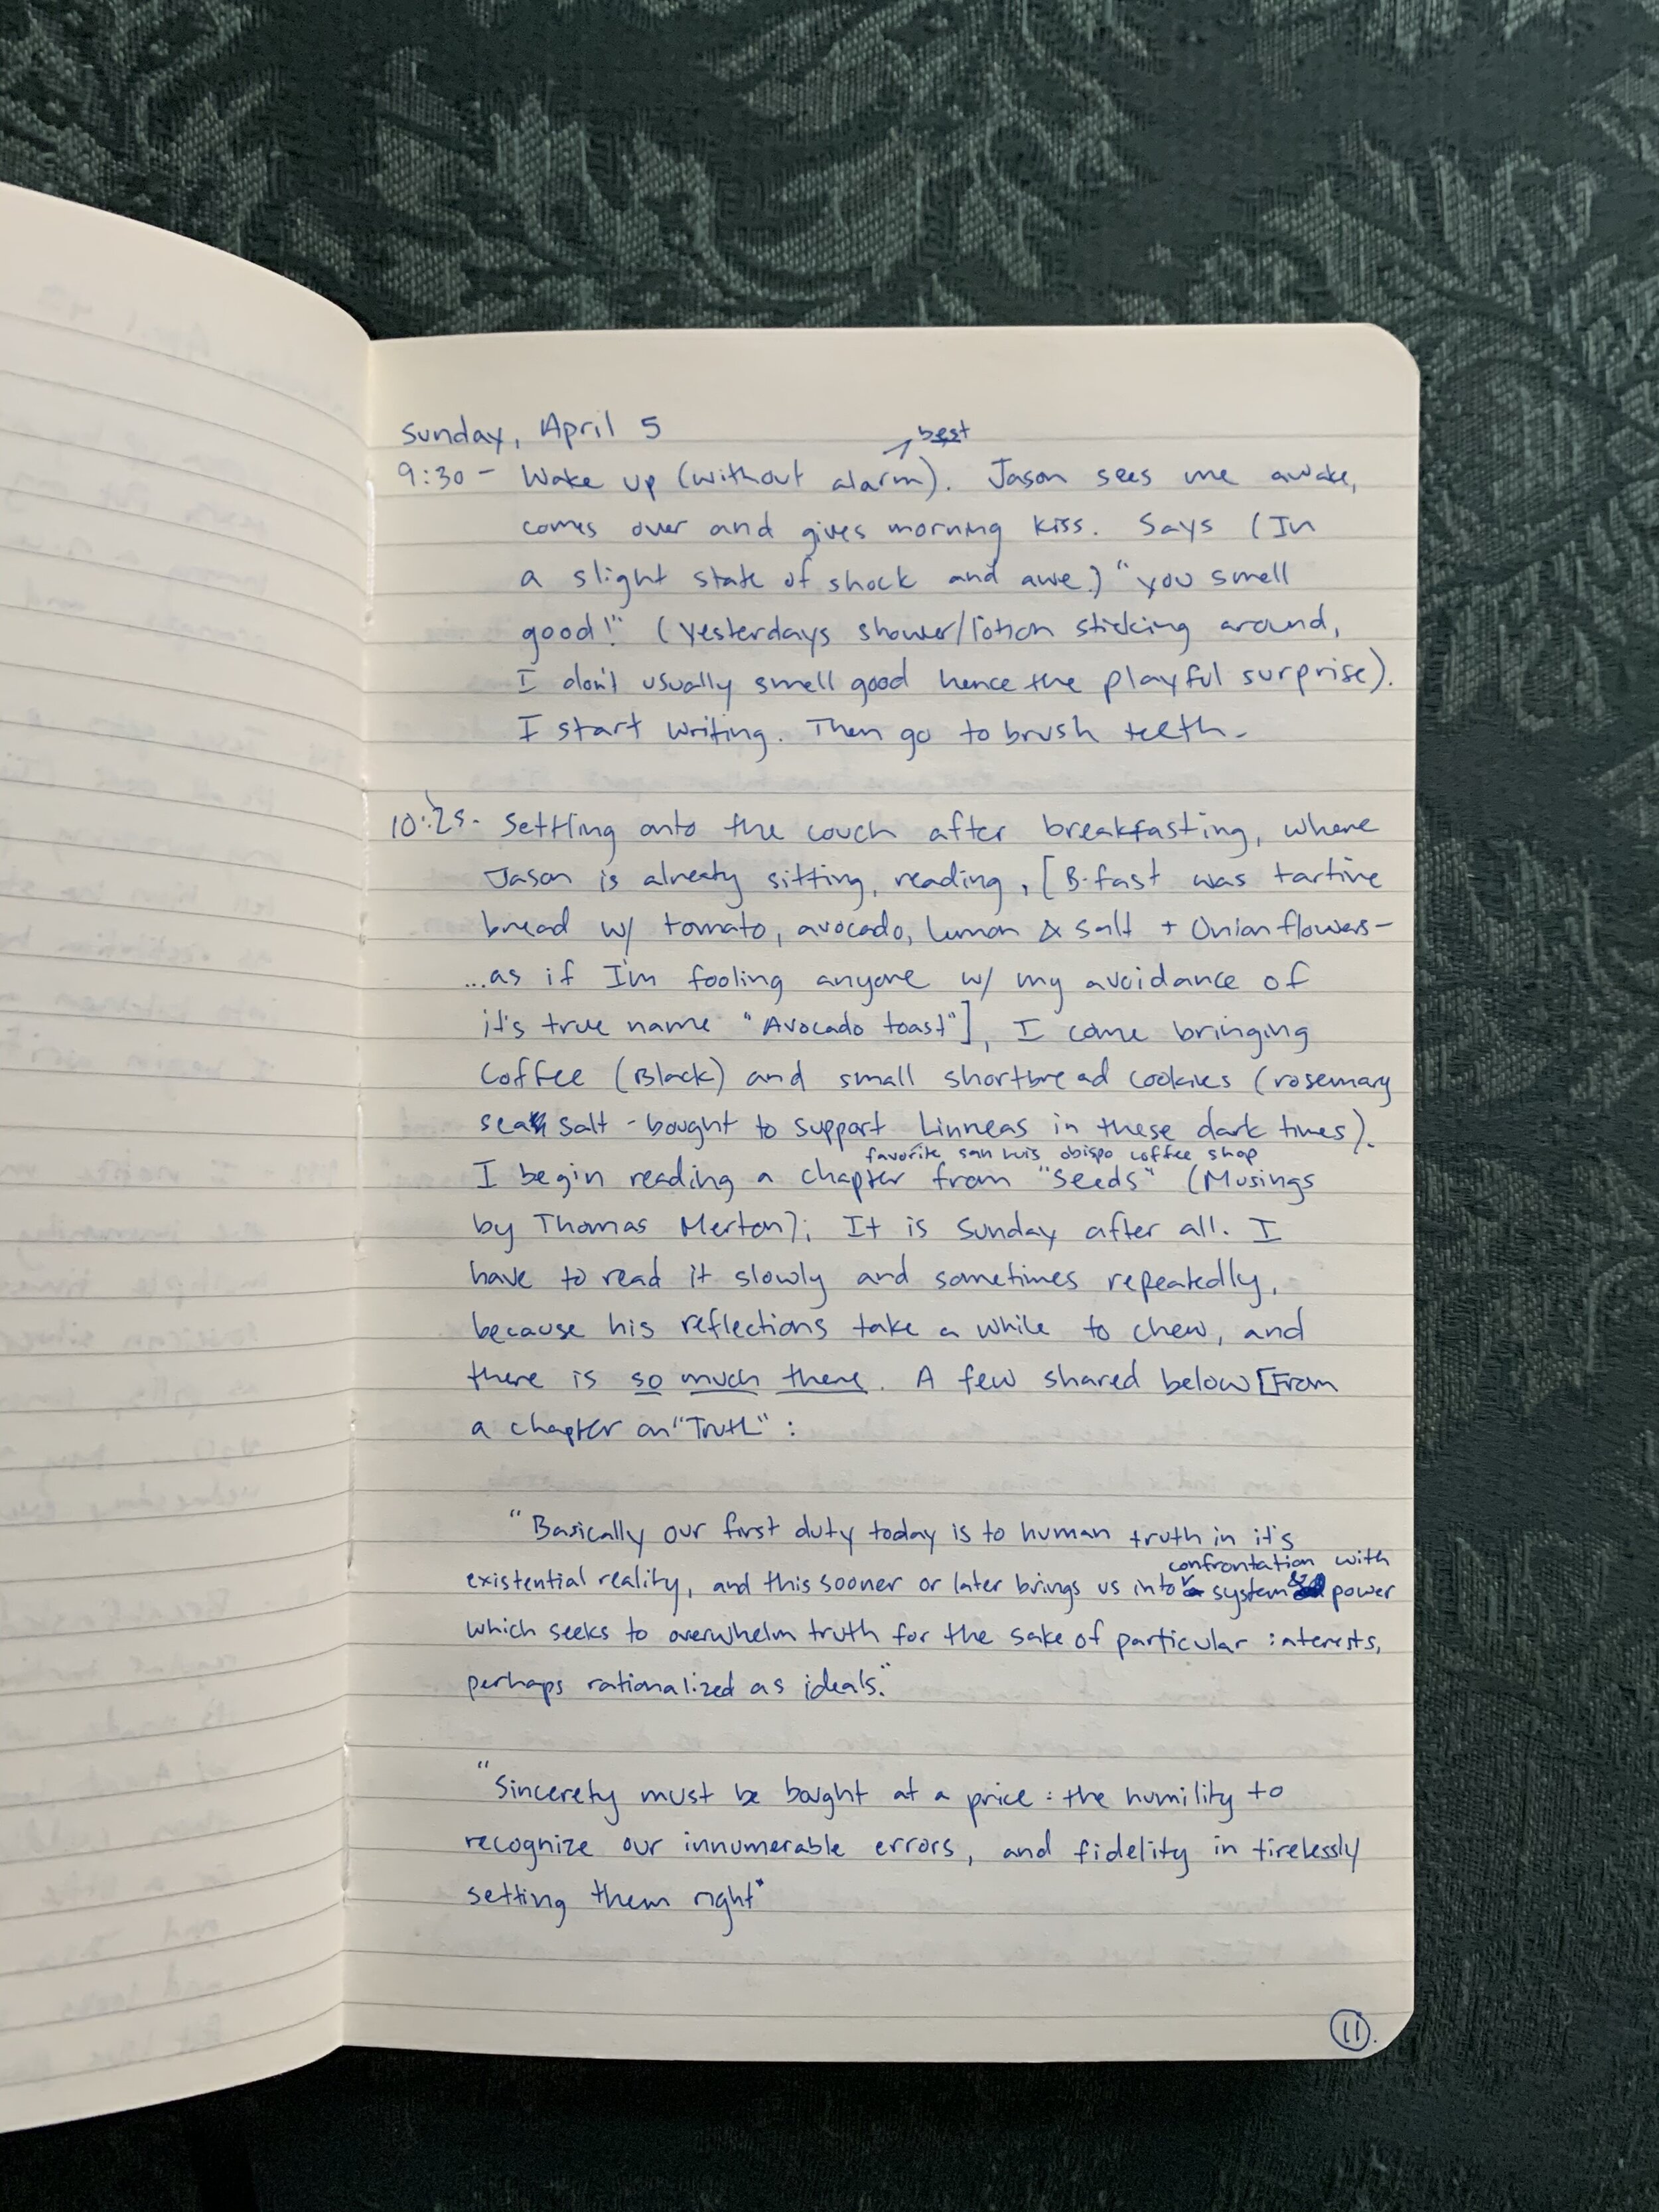 Sunday, April 5
best
9:30 - Wake up (without alarm). Jason sees me awake,
comes over and gives morning kiss. Says (In
a slight state of shock and awe) "you smell
good!" (yesterdays shower/lotion sticking around,
I don't usually smell good hence the playful surprise).
I start writing. Then go to brush teeth.
10:25- Settling onto the couch after breakfasting, where
Jason is already sitting, reading, [B-fast was tartine
bread w/ tomato, avocado, lemon & salt + Onion flowers-
...as if I'm fooling anyone w/ my avoidance of
it's true name "Avocado toast"], I come bringing
Coffee (Black) and small shortbread cookies (rosemary
sea salt - bought to support Linneas in these dark times).
favorite san luis obispo coffee shop
I begin reading a chapter from "Seeds" (Musings
by Thomas Merton); It is Sunday after all. I
have to read it slowly and sometimes repeatedly,
because his reflections take a while to chew, and
there is so much there. A few shared below [From
a chapter on "Truth" :
"Basically our first duty today is to human truth in it's
confrontation with
existential reality, and this sooner or later brings us into system & power
which seeks to overwhelm truth for the sake of particular interests,
perhaps rationalized as ideals."
"Sincerety must be bought at a price: the humility to
recognize our innumerable errors, and fidelity in tirelessly
setting them right"
11.